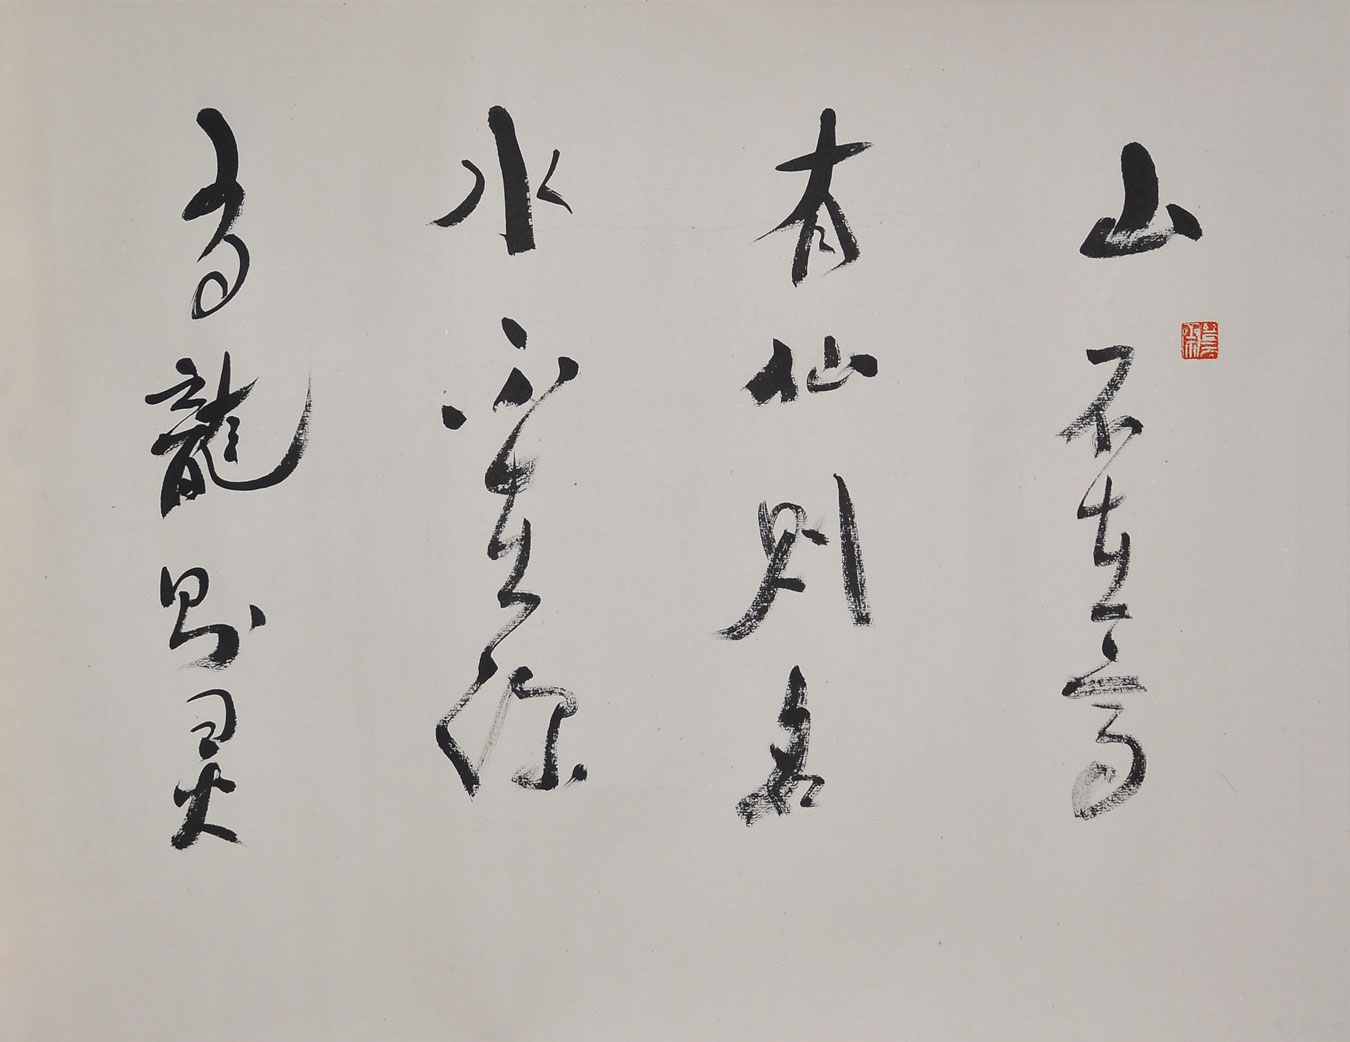 山不在高
有仙則名
水不在深
有龍則灵